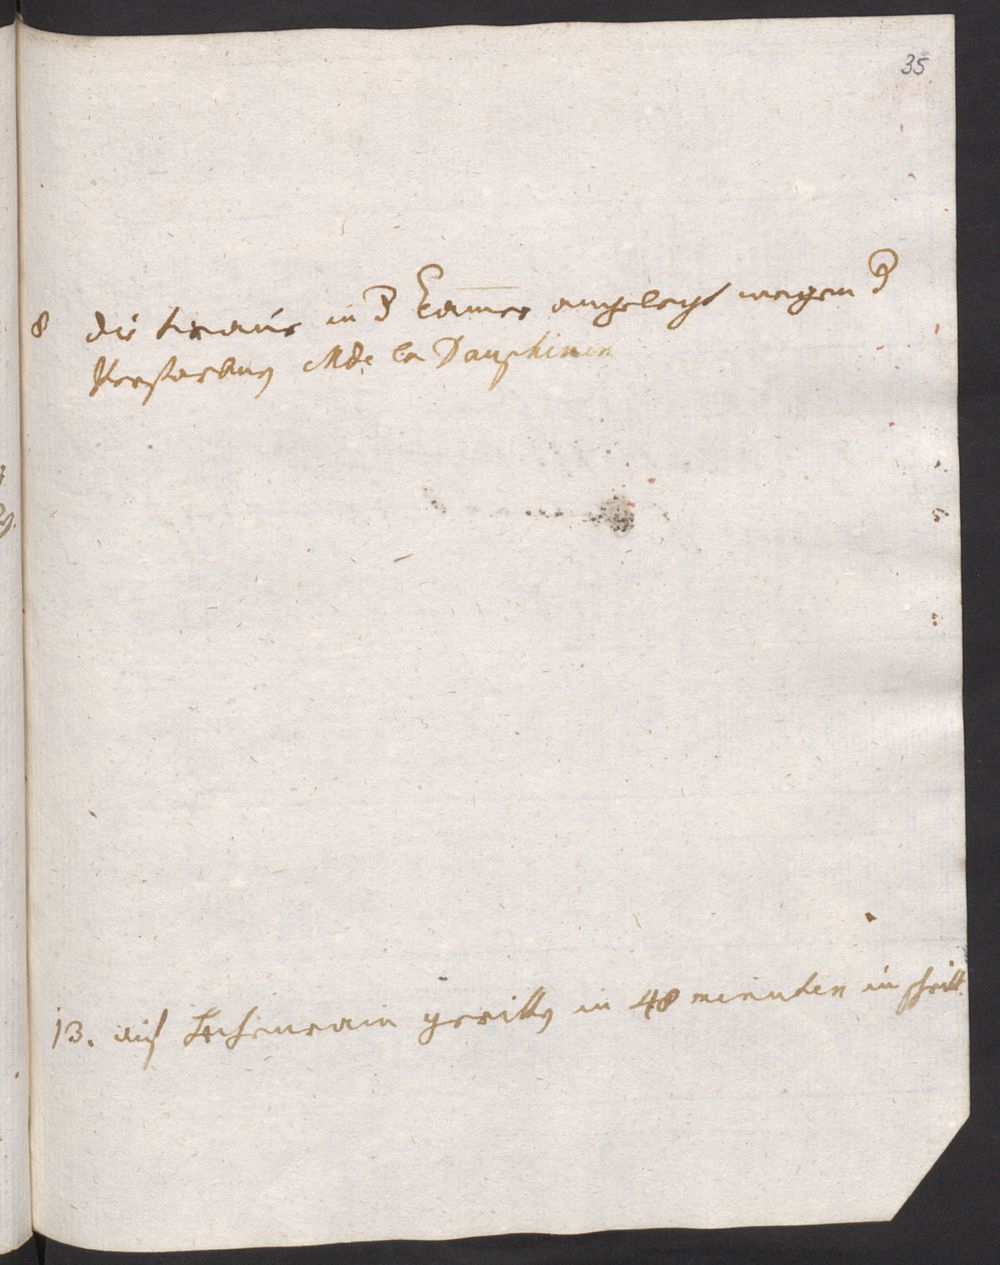 35
8 die traur in d Cammer angelegt wegen d
Verstorbnen Mde la Dauphinen
13. auf Lechenrain geritten in 48 minuten im schritt.